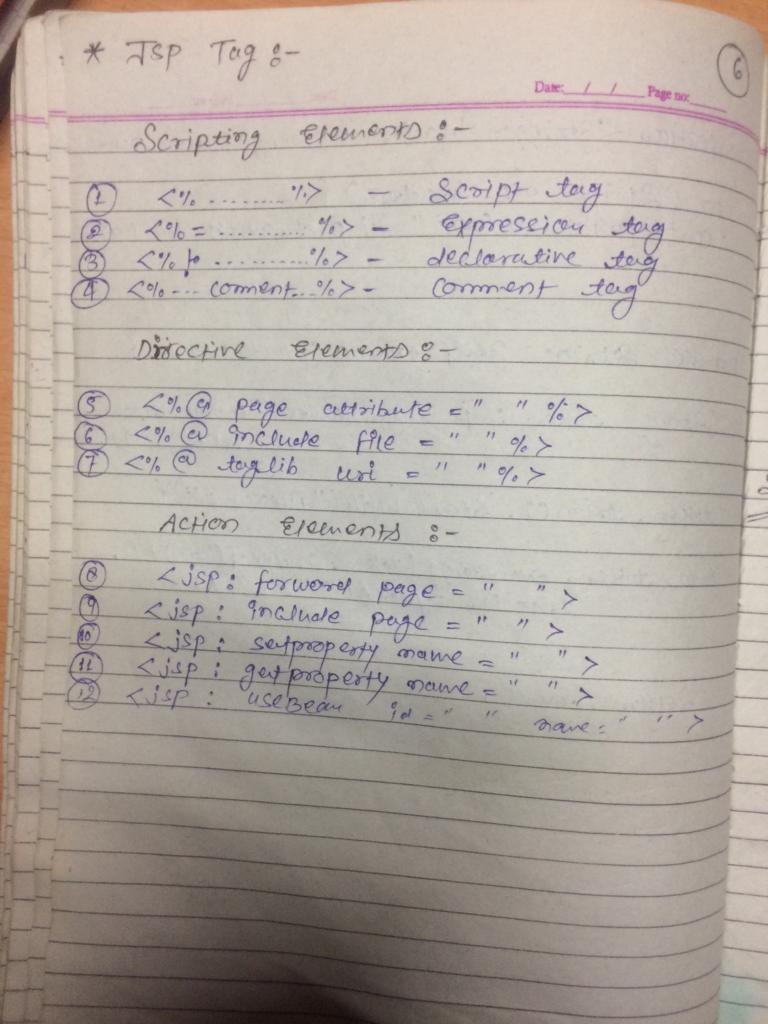 * Jsp Tag :-
6
Date: / / Page no:
Scripting Elements :-
1 <% ......... %> - Script tag
2 <% = ........... %> - Expression tag
3 <% ........... %> - declarative tag
4 <% --- comment... %> - comment tag
Directive Elements :-
5 <% @ page attribute = " " %>
6 <% @ include file = " " %>
7 <% @ taglib uri = " " %>
Action Elements :-
8 <jsp : forword page = " " >
9 <jsp : include page = " " >
10 <jsp : setproperty name = " " >
11 <jsp : getproperty name = " " >
12 <jsp : useBean id = " " name = " " >